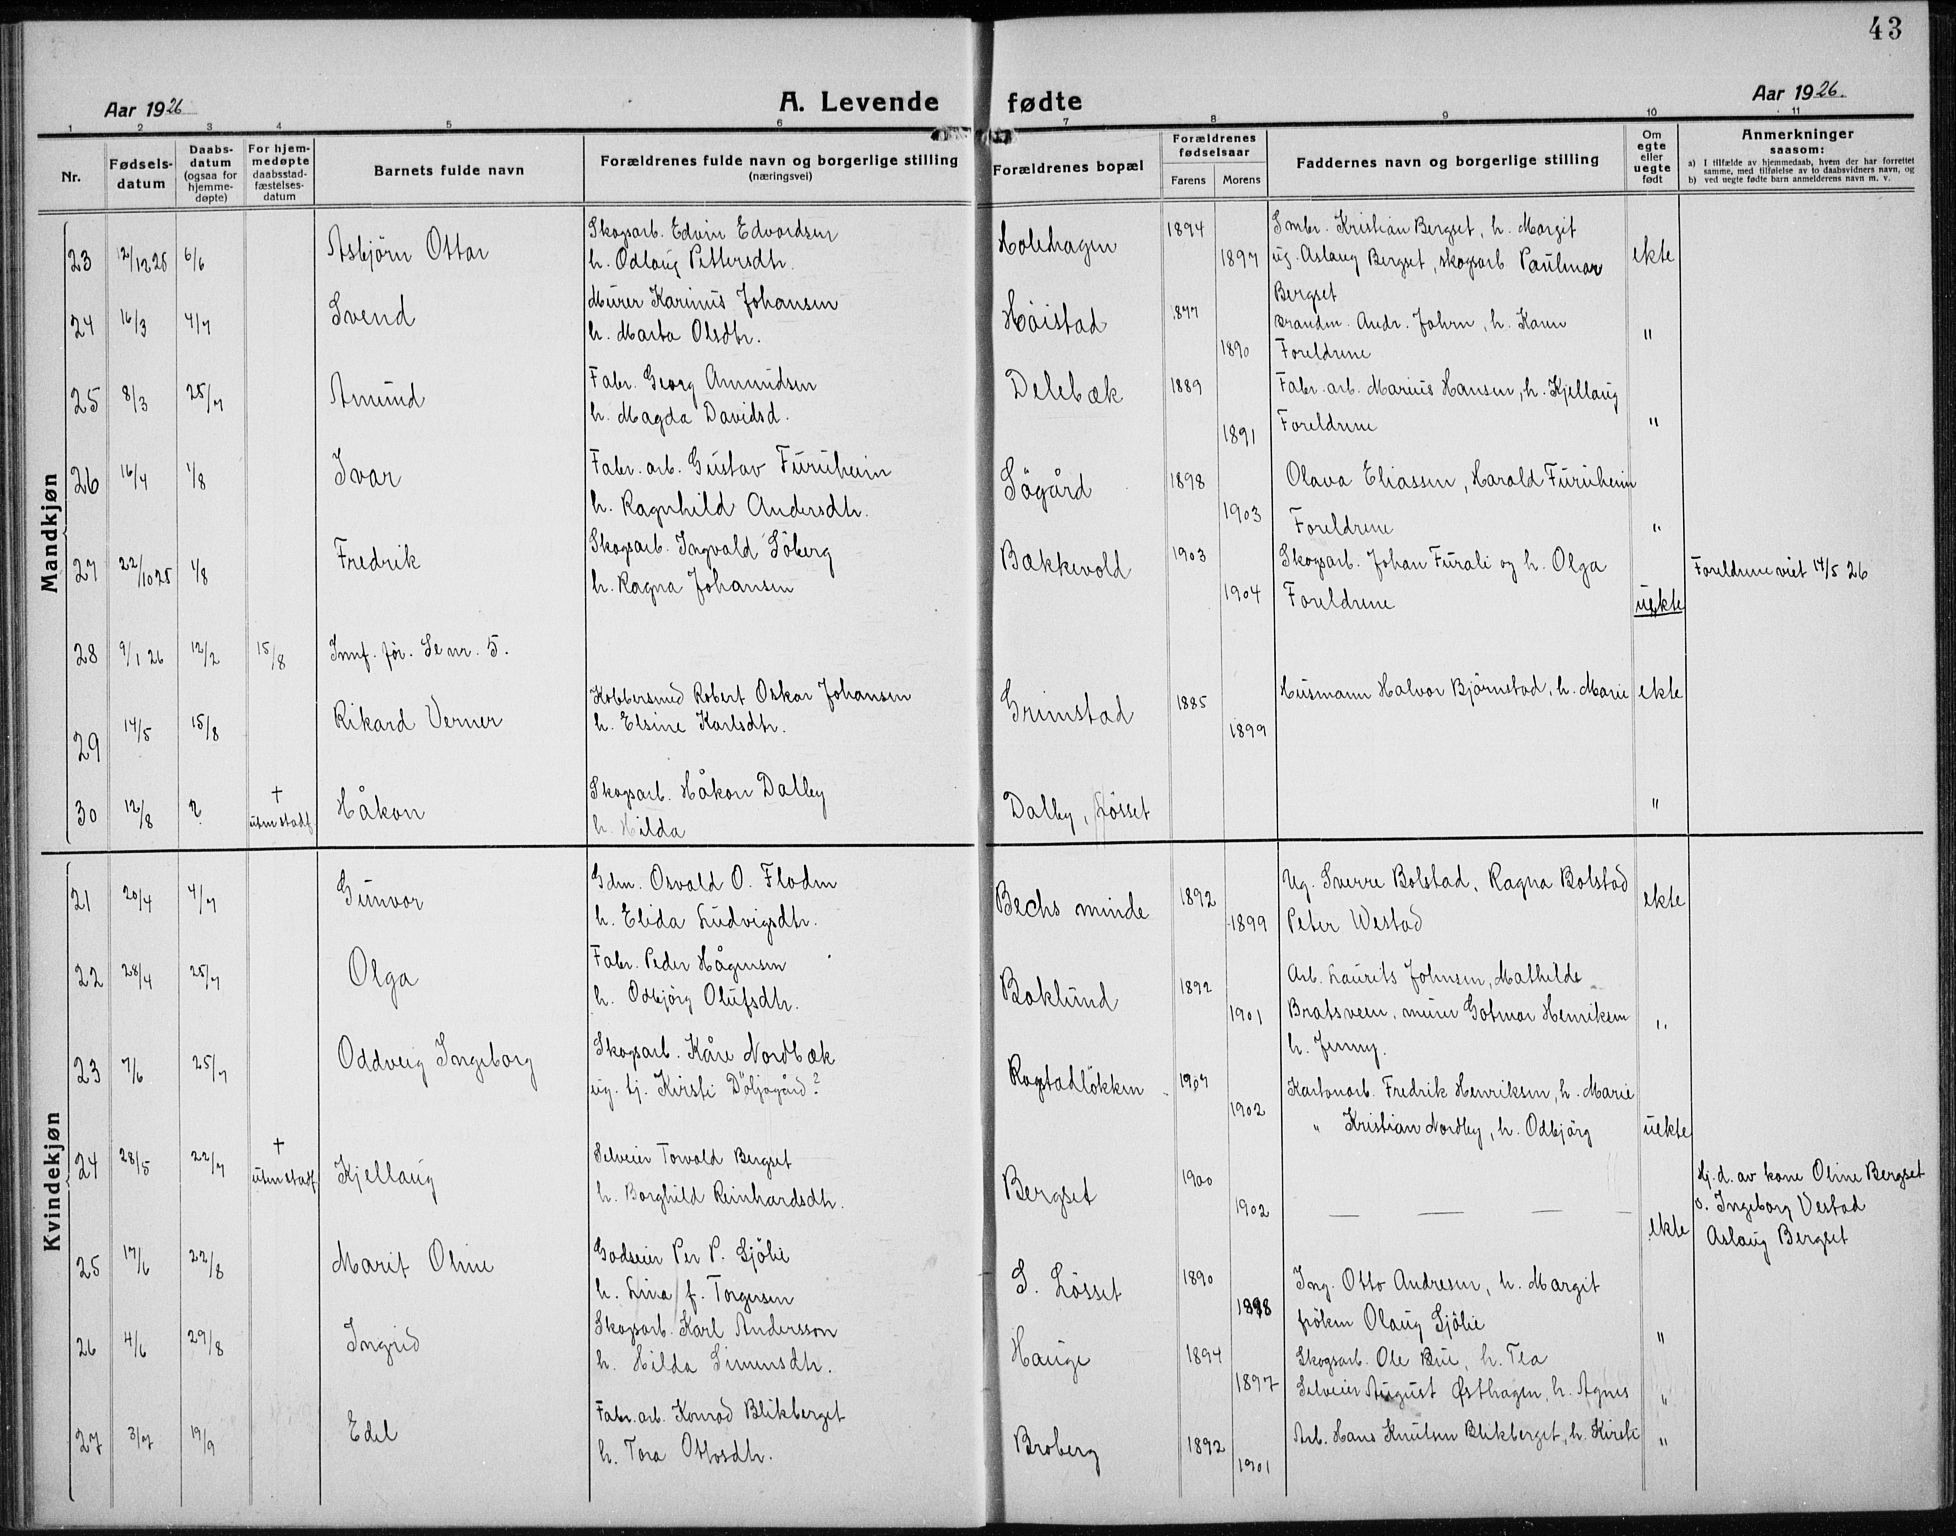 43
Aar 1926
A. Levende fødte
Aar 1926.
1 2 3 4 5 6 7 8 9 10 11
Nr.
Fødsels-
datum
Daabs-
datum
(ogsaa for
hjemme-
døpte)
For hjem-
medøpte
daabsstad-
fæstelses-
datum
Barnets fulde navn
Forældrenes fulde navn og borgerlige stilling
(næringsvei)
Forældrenes bopæl
Forældrenes
fødselsaar
Farens Morens
Faddernes navn og borgerlige stilling
Om
egte
eller
uegte
født
Anmerkninger
saasom:
a) I tilfælde av hjemmedaab, hvem der har forrettet
samme, med tilføielse av to daabsvidners navn, og
b) ved uegte fødte barn anmelderens navn m. v.
Mandkjøn
23 12/12 25 6/6 Asbjörn Ottar
Skogsarb. Edvin Edvardsen
h. Odlaug Pettersdtr.
Holehagen 1894 1897
Smbr. Kristian Bergset, h. Margit
ug. Aslaug Bergset, skogsarb Paulmar
Bergset
ekte
24 16/3 4/7 Svend
Murer Karinus Johansen
h. Marta Olsdtr.
Höistad 1877 1890
Brandm. Andr. Johrn, h. Karen
Foreldrene
"
25 8/3 25/7 Amund
Fabr. Georg Amundsen
h. Magda Davidsd.
Delebæk 1889 1891
Fabr. arb. Marius Hansen, h. Kjellaug
Foreldrene
"
26 16/4 1/8 Ivar
Fabr. arb. Gustav Furuheim
h. Ragnhild Andersdtr.
Sögård 1898 1903
Olava Eliassen, Harald Furuheim
Foreldrene
"
27 22/10 25 1/8 Fredrik
Skogsarb. Ingvald Söberg
h. Ragna Johansen
Bækkevold 1903 1904
Skogsarb. Johan Furali og h. Olga
Foreldrene
uekte
Foreldrene viet 14/5 26
28 9/1 26 12/2 15/8 Innf. för. Se nr. 5.
29 14/5 15/8 Rikard Verner
Kobbersmed Robert Oskar Johansen
h. Elsine Karlsdtr.
Grimstad 1885 1899
Husmann Halvor Björnstad, h. Marie
ekte
30 12/8 ? † uten stadf. Håkon
Skogsarb. Håkon Dalby
h. Hilda
Dalby, Lösset
"
Kvindekjøn
21 20/4 4/7 Gunvor
Gdm. Osvald O. Floden
h. Elida Ludvigsdtr.
Bechs minde 1892 1899
Ug. Sverre Bolstad, Ragna Bolstad
Peter Westad
ekte
22 28/4 25/7 Olga
Fabr. Peder Hågensen
h. Odbjörg Olufsdtr.
Baklund 1892 1901
Arb. Laurits Johnsen, Mathilde
Bratsveen, murer Gotmar Henriksen
h. Jenny.
"
23 7/6 25/7 Oddveig Ingeborg
Skogsarb. Kåre Nordbæk
ug. tj. Kirsti Döljogård?
Rogstadlökken 1907 1902
Kartonarb. Fredrik Henriksen, h. Marie
" Kristian Nordby, h. Odbjörg
uekte
24 28/5 22/7 † uten stadf. Kjellaug
Selveier Torvald Bergset
h. Borghild Reinhardsdtr.
Bergset 1900 1902
— — —
ekte
Hj. d. av kone Oline Bergset
o. Ingeborg Vestad
Aslaug Bergset
25 17/6 22/8 Marit Oline
Godseier Per P. Sjölie
h. Lina f. Torgersen
S. Lösset 1890 1898
Ing. Otto Andresen, h. Margit
fröken Olaug Sjölie
"
26 4/6 29/8 Ingrid
Skogsarb. Karl Andersson
h. Hilda Simensdtr.
Hauge 1894 1897
Skogsarb. Ole Bue, h. Tea
Selveier August Østhagen, h. Agnes
"
27 3/7 19/9 Edel
Fabr. arb. Konrad Blikberget
h. Tora Ottosdtr.
Broberg 1892 1901
Arb. Hans Knutsen Blikberget, h. Kirsti
"